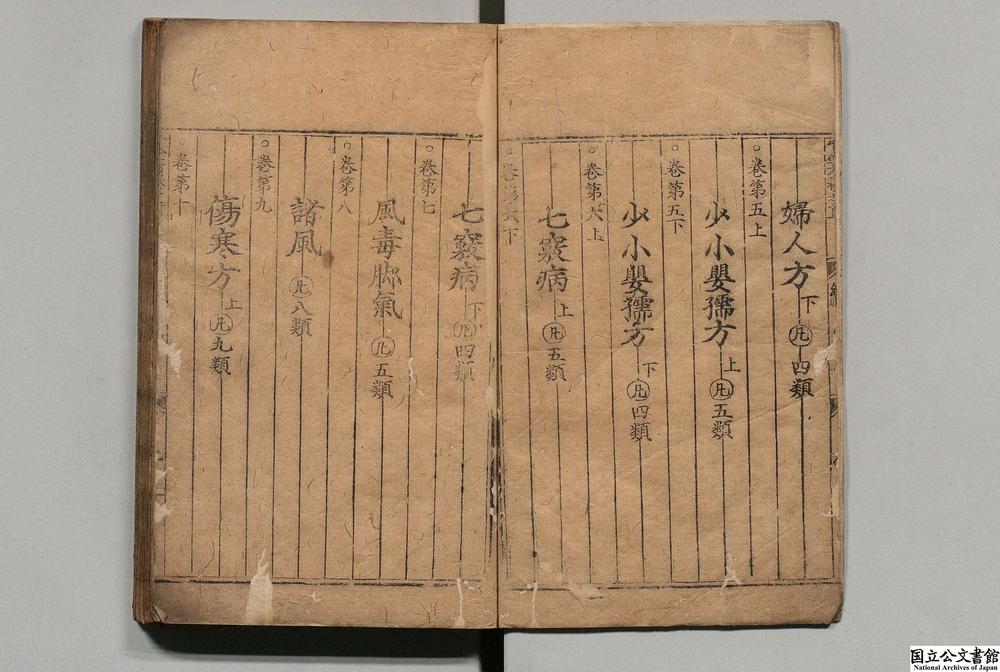 婦人方下凡四類
○卷第五上
少小嬰孺方上凡五類
○卷第五下
少小嬰孺方下凡四類
○卷第六上
七竅病上凡五類
○卷第六下
七竅病下凡四類
○卷第七
風毒脚氣凡五類
○卷第八
諸風凡八類
○卷第九
傷寒方上凡九類
○卷第十
国立公文書館
National Archives of Japan